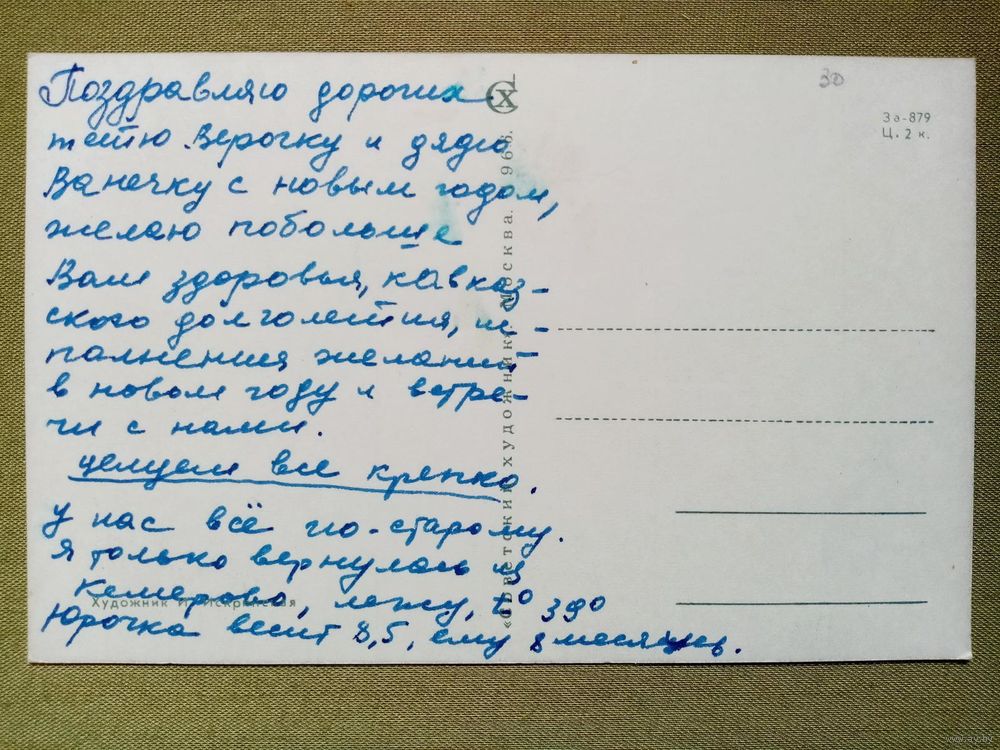 Поздравляю дорогих
тётю Верочку и дядю
Ванечку с новым годом,
желаю побольше
Вам здоровья, кавказ-
ского долголетия, ис-
полнения желаний
в новом году и встре-
чи с нами.
целуем все крепко.
У нас всё по-старому.
Я только вернулась из
Кемерово, лежу, t° 39°
Юрочка весит 8,5, ему 8 месяцев.
30
За-879
Ц. 2 к.
СХ
«Советский художник». Москва. 196
Художник И. Искринская
www.ay.by